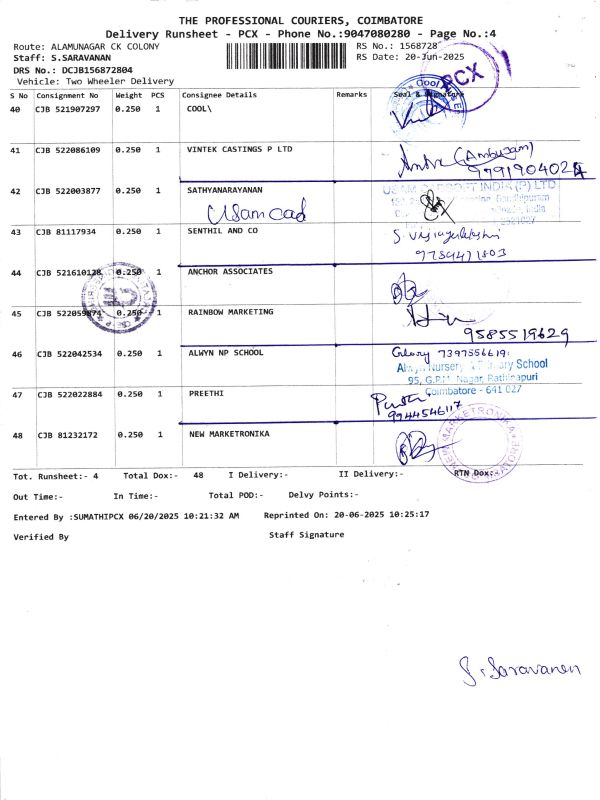 THE PROFESSIONAL COURIERS, COIMBATORE
Delivery Runsheet - PCX - Phone No.:9047080280 - Page No.:4
Route: ALAMUNAGAR CK COLONY
RS No.: 1568728
Staff: S.SARAVANAN
RS Date: 20-Jun-2025
DRS No.: DCJB156872804
Vehicle: Two Wheeler Delivery
PCX
S No Consignment No Weight PCS Consignee Details Remarks Seal & Signature
40 CJB 521907297 0.250 1 COOL\
41 CJB 522086109 0.250 1 VINTEK CASTINGS P LTD
(Ambujam)
9791904024
42 CJB 522003877 0.250 1 SATHYANARAYANAN
Usam cad
INDIA (P) LTD
43 CJB 81117934 0.250 1 SENTHIL AND CO
44 CJB 521610128 0.250 1 ANCHOR ASSOCIATES
45 CJB 522059874 0.250 1 RAINBOW MARKETING
9585519629
46 CJB 522042534 0.250 1 ALWYN NP SCHOOL
Glory 7397556619
Alwyn Nursery & Primary School
95, G.P.M Nagar, Rathinapuri
Coimbatore - 641 027
47 CJB 522022884 0.250 1 PREETHI
9944546117
48 CJB 81232172 0.250 1 NEW MARKETRONIKA
Tot. Runsheet:- 4 Total Dox:- 48 I Delivery:- II Delivery:- RTN Dox:-
Out Time:- In Time:- Total POD:- Delvy Points:-
Entered By :SUMATHIPCX 06/20/2025 10:21:32 AM Reprinted On: 20-06-2025 10:25:17
Verified By Staff Signature
S. Saravanan